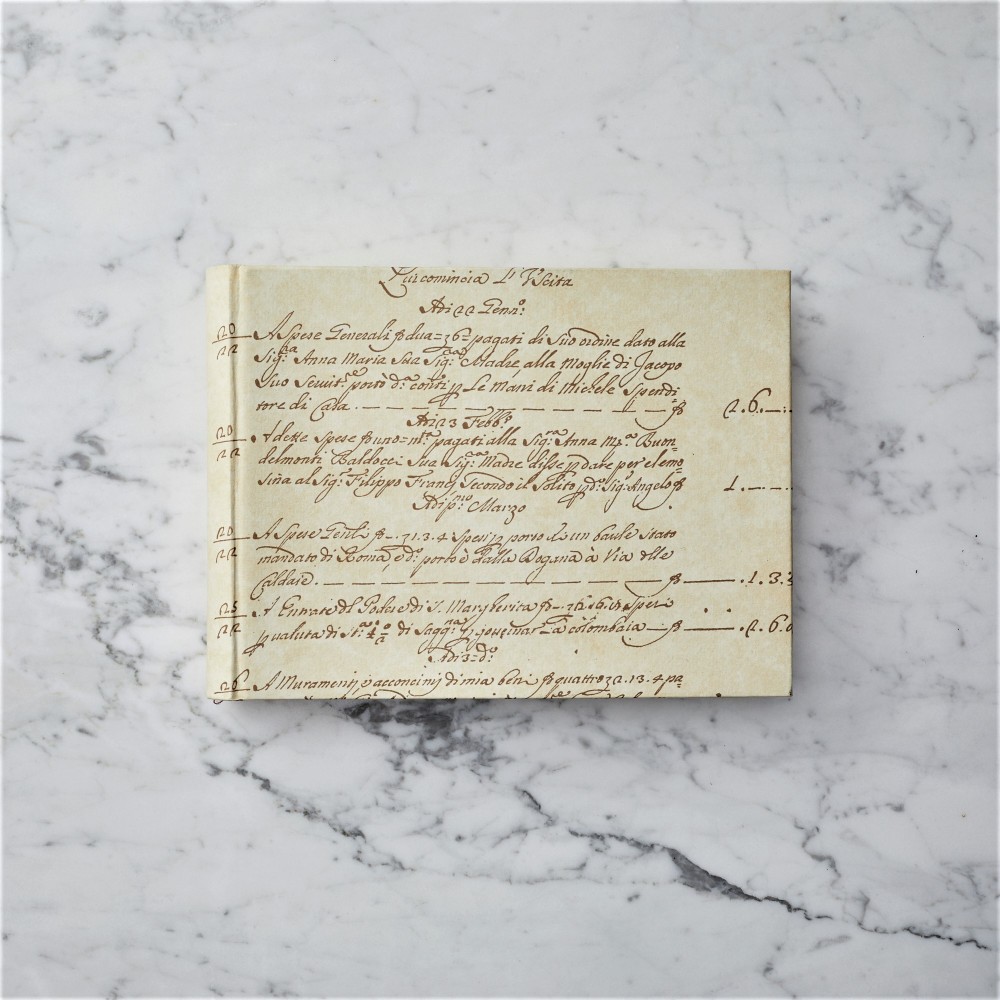 Qui comincia L' Vscita
Adi 22 Genn:o
20 A Spese Generali dua=36= pagati di Suo ordine dato alla
22 Sig:ra Anna Maria Sua Sig:ra Madre alla Moglie di Jacopo
Suo Seruit:e portò d: conti p Le Mani di Michele Spendi=
tore di Casa. 2.6.—
Adi 23 Febb:o
20 A dette Spese uno= pagati alla Sig:ra Anna M:a Buon=
22 delmonti Baldocci Sua Sig:ra Madre disse p dare per elemo
sina al Sig: Filippo Secondo il Solito p d:o Sig: Angelo 1.—.—
Adi p:mo Marzo
20 A Spese —.1.3.4 Spesi p porto di un baule Stato
22 mandato di Roma, e d: porto è dalla Dogana à Via delle
Caldaie. — .1.3.
25 A Entrate del Podere di S. Margherita
22 p ualuta di di Sagg:na La colombaia — .2.6.
Adi 3 d:o
26 A Muramenti, e acconcimj di mia beni quattro 32.13.4 pa=